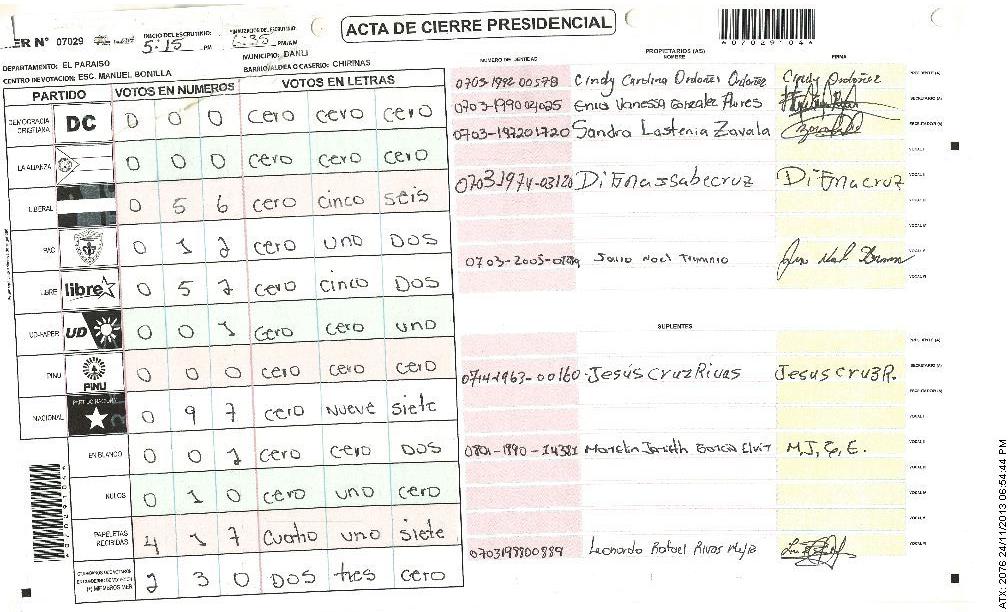 ACTA DE CIERRE PRESIDENCIAL
ER N° 07029
INICIO DEL ESCRUTINIO: 5:15 PM
PM/AM
A07029104A
DEPARTAMENTO: EL PARAISO
MUNICIPIO: DANLI
CENTRO DE VOTACION: ESC. MANUEL BONILLA
BARRIO/ALDEA O CASERIO: CHIRINAS
PARTIDO VOTOS EN NUMEROS VOTOS EN LETRAS
DEMOCRACIA CRISTIANA DC 0 0 0 cero cero cero
LA ALIANZA 0 0 0 cero cero cero
LIBERAL 0 5 6 cero cinco seis
PAC 0 1 2 cero uno DOS
LIBRE libre 0 5 2 cero cinco DOS
UD-FAPER UD 0 0 1 cero cero uno
PINU PINU 0 0 0 cero cero cero
NACIONAL 0 9 7 cero nueve siete
EN BLANCO 0 0 2 cero cero DOS
NULOS 0 1 0 cero uno cero
PAPELETAS RECIBIDAS 4 1 7 cuatro uno siete
2 3 0 DOS tres cero
PROPIETARIOS (AS)
NUMERO DE IDENTIDAD NOMBRE FIRMA
0703-1992 00578 Cindy Carolina Ordoñez Ordoñez Cindy Ordoñez
Vanessa Gonzalez Flores
0703-197201720 Sandra Lastenia Zavala
0703 1974-03120
Noel
SUPLENTES
0714-1963-00160 Jesús Cruz Rivas Jesus Cruz R.
M, J, G, E.
0703198800889 Leonardo Rafael Rivas Mejia
ATX: 2076 24/11/2013 06:54:44 PM